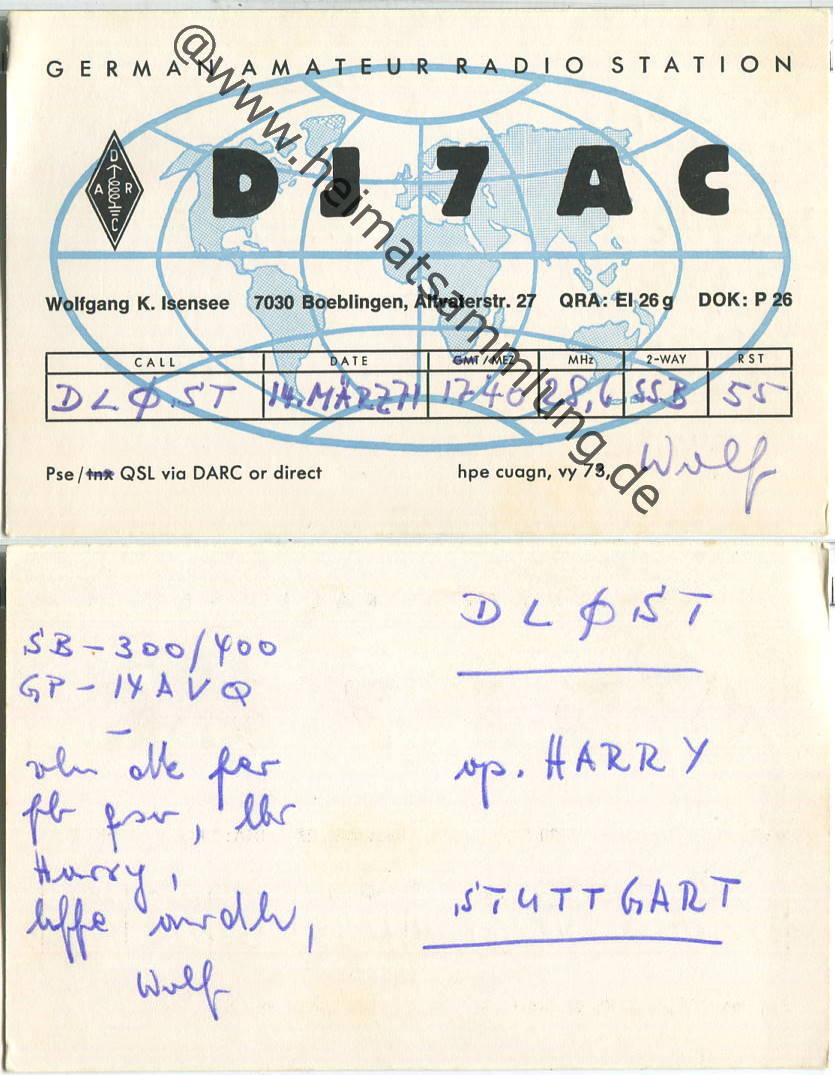 GERMAN AMATEUR RADIO STATION
DARC
DJ7AC
Wolfgang K. Isensee 7030 Boeblingen, Altvaterstr. 27 QRA: EI 26 g DOK: P 26
CALL DATE GMT/MEZ MHz 2-WAY RST
DLØST 14. MÄRZ 71 1740 28,6 SSB 55
Pse/tnx QSL via DARC or direct hpe cuagn, vy 73, Wolf
@www.heimatsammlung.de
SB-300/400
GP-14AVQ
vln dk fer
fb qso, lbr
Harry,
hffe awdh,
Wolf
DLØST
op. HARRY
STUTTGART